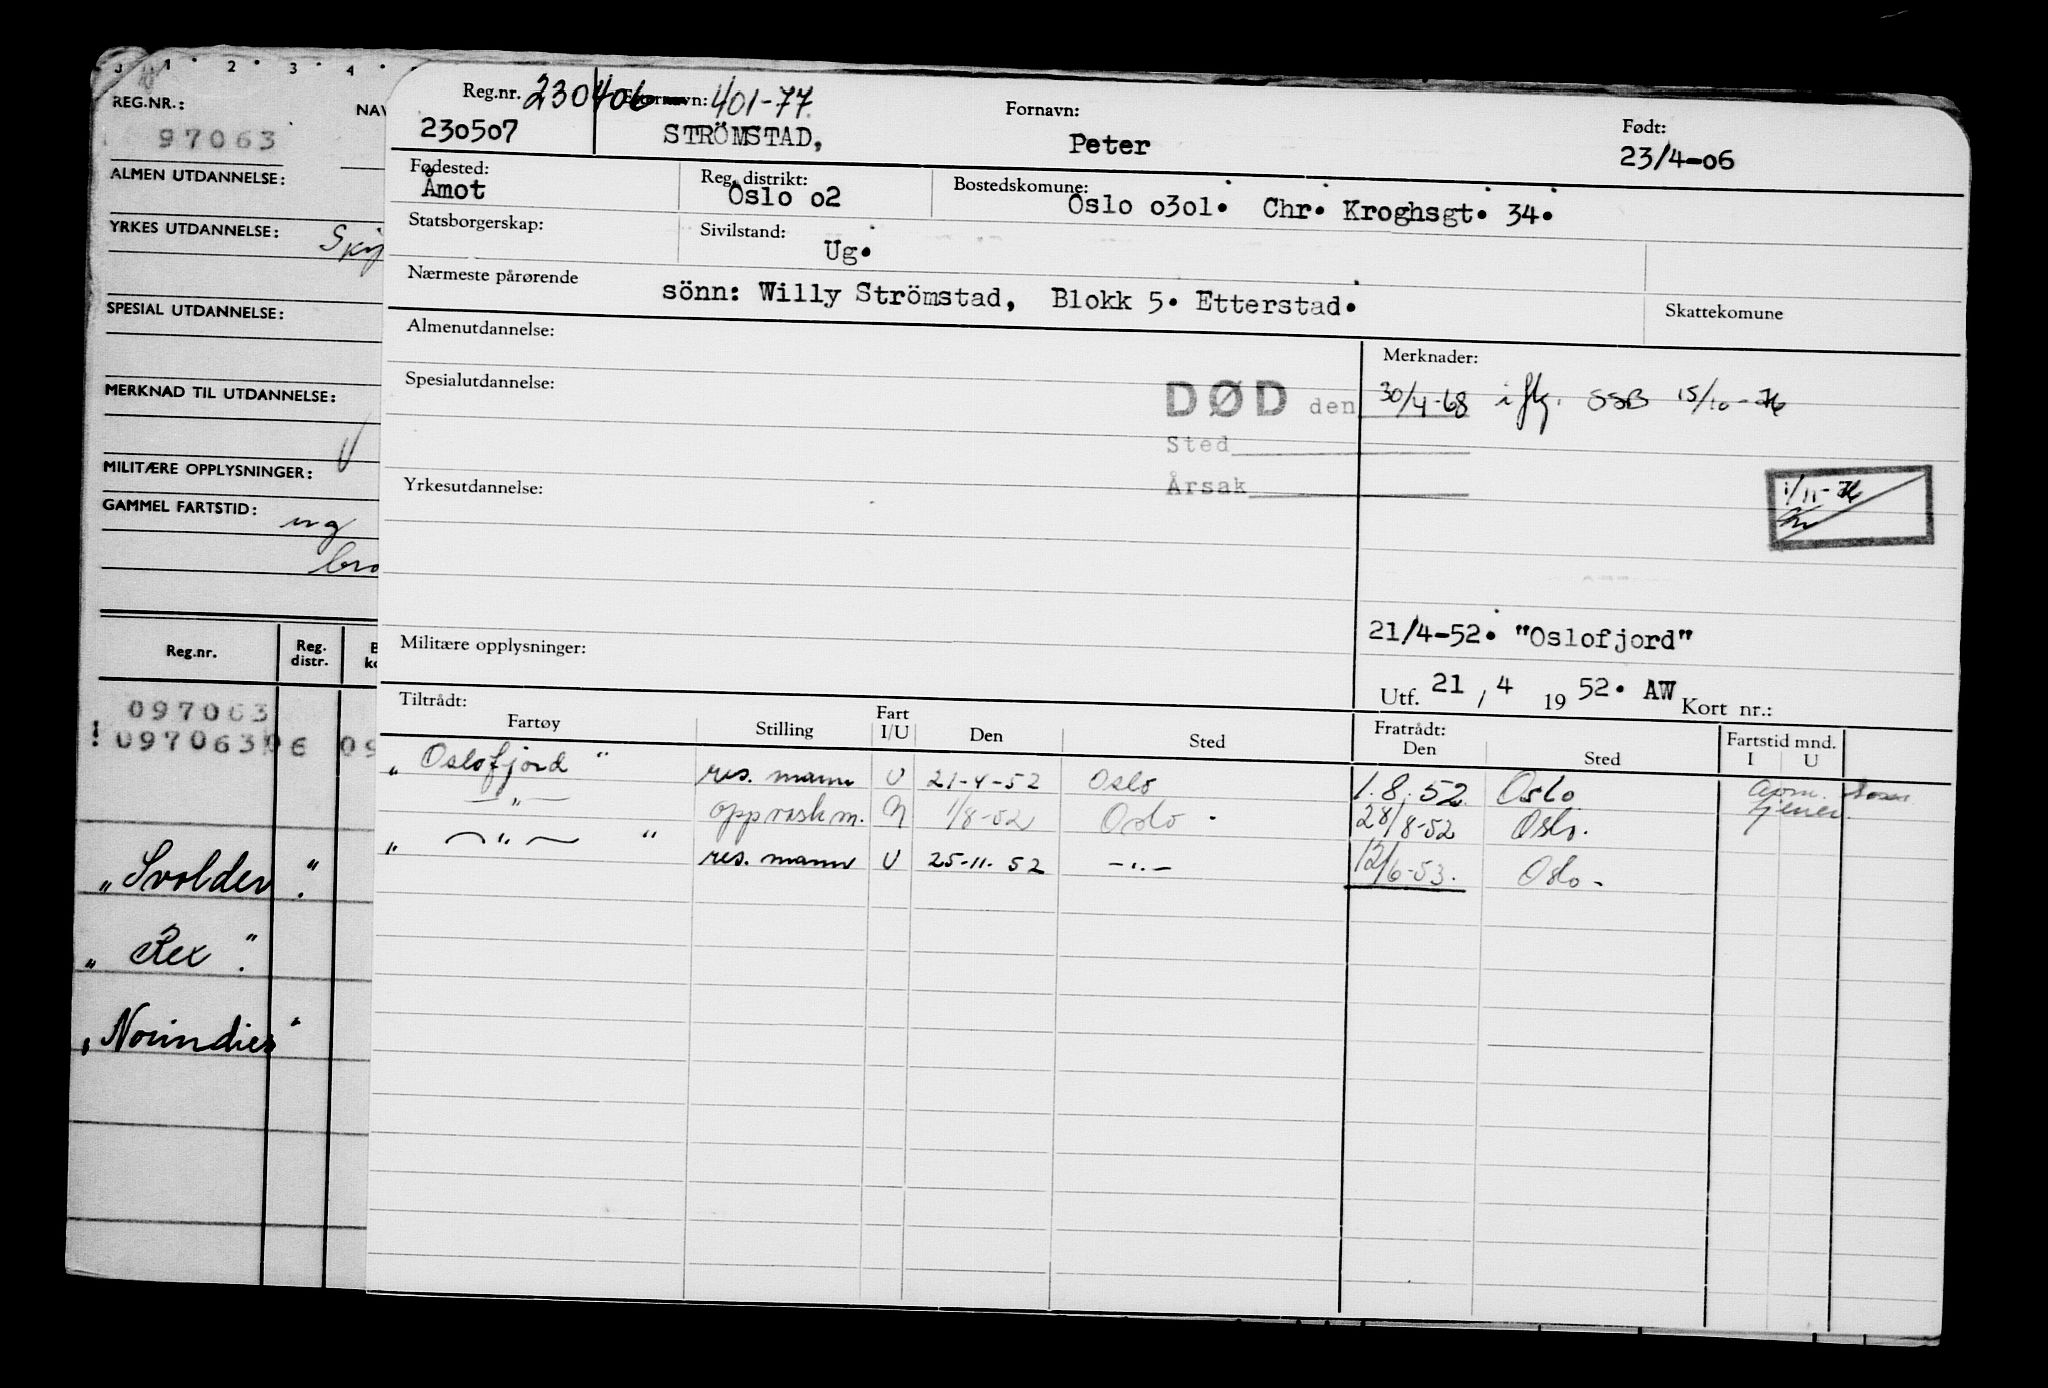 3 1 2 3 4
REG.NR.:
NAV
97063
ALMEN UTDANNELSE:
YRKES UTDANNELSE:
SPESIAL UTDANNELSE:
MERKNAD TIL UTDANNELSE:
MILITÆRE OPPLYSNINGER:
GAMMEL FARTSTID:
ug
Reg.nr. Reg. distr.
097063
! 097063
„Svolder".
„Rex".
„Norindies"
Reg.nr. 230406 Etternavn: 401-77 Fornavn: Født:
230507 STRÖMSTAD, Peter 23/4-06
Fødested: Reg. distrikt: Bostedskomune:
Åmot Oslo o2 Oslo o3o1. Chr. Kroghsgt. 34.
Statsborgerskap: Sivilstand:
Ug.
Nærmeste pårørende
sönn: Willy Strömstad, Blokk 5. Etterstad.
Skattekomune
Almenutdannelse: Merknader:
Spesialutdannelse:
DØD den 30/4-68 iflg. SSB 15/10-76
Sted
Årsak
Yrkesutdannelse:
1/11-76
21/4-52. "Oslofjord"
Militære opplysninger:
Utf. 21 / 4 1952. AW Kort nr.:
Tiltrådt: Fratrådt: Fartstid mnd.
Fartøy Stilling Fart I/U Den Sted Den Sted I U
„Oslofjord" res. mann U 21-4-52 Oslo 1.8.52. Oslo
—"— oppvaskm. N 1/8-52 Oslo. 28/8-52 Oslo. tjener.
„ —"— " res. mann U 25-11.52 —"— 12/6-53. Oslo-